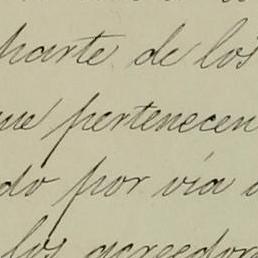 parte de los
que pertenecen
do por vía
los acreedor